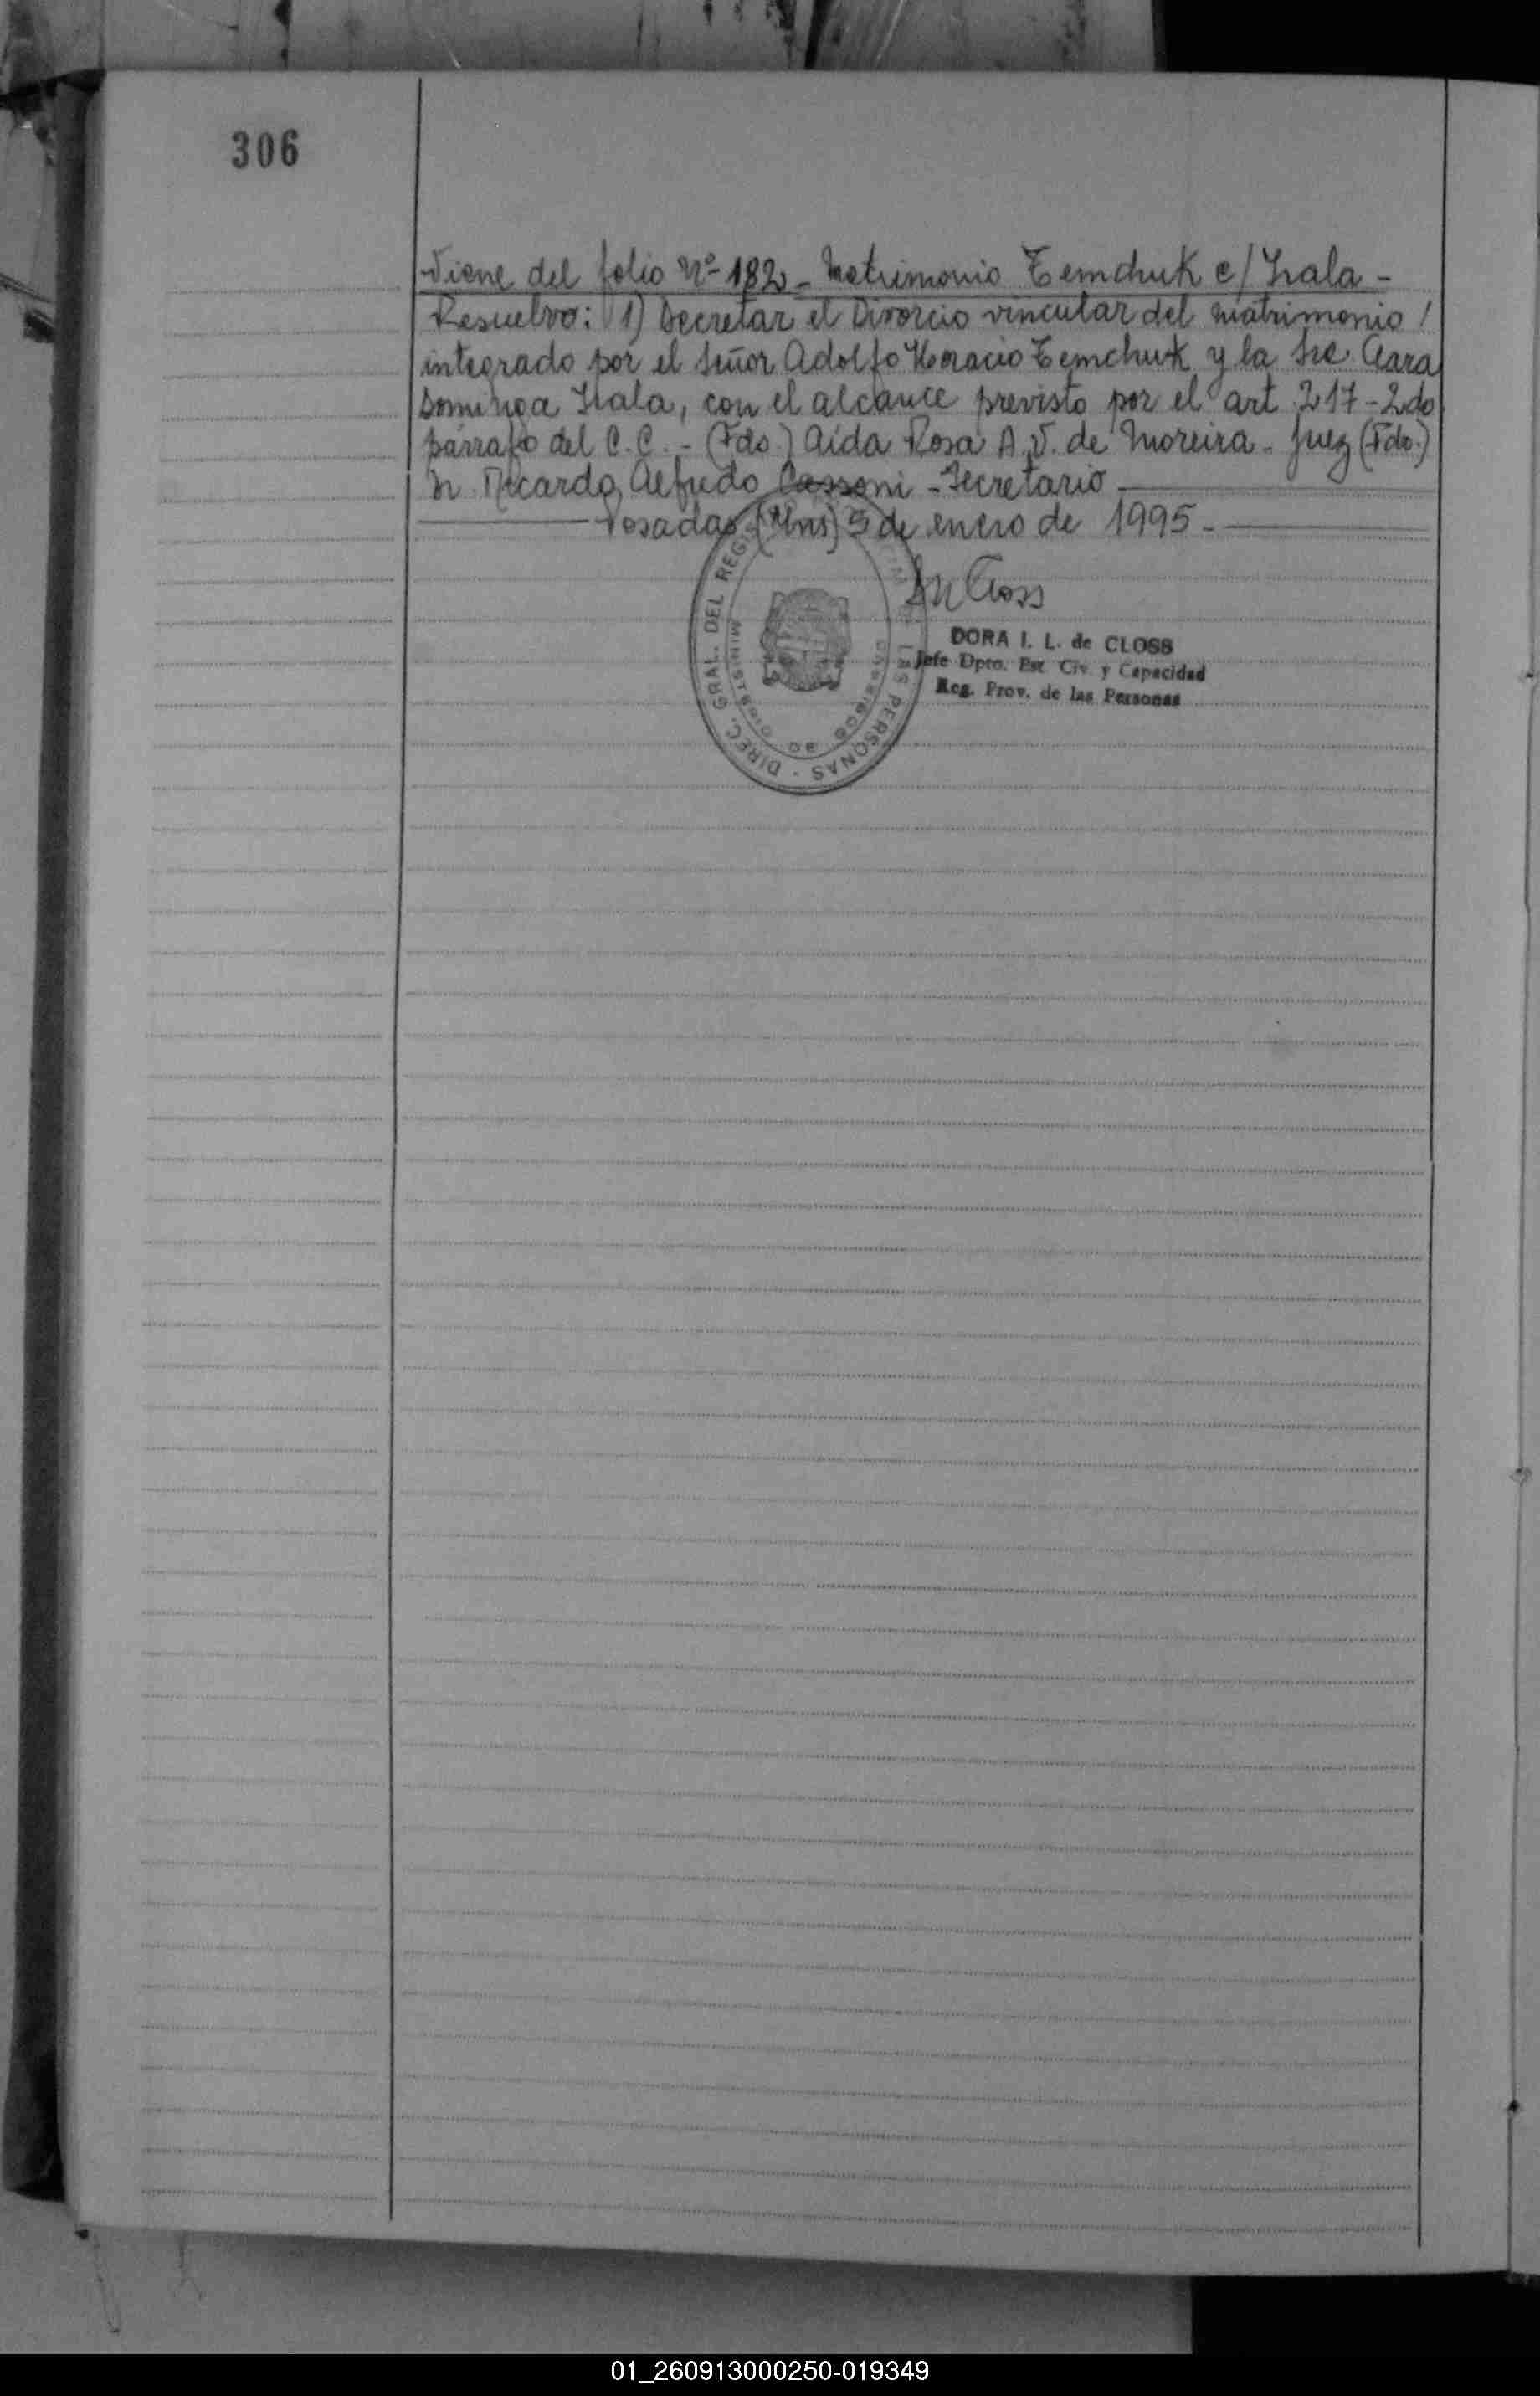 306
Viene del folio Nº 182 - Matrimonio Temchuk c/ Irala -
Resuelvo: 1) Decretar el Divorcio vincular del matrimonio /
integrado por el Señor Adolfo Horacio Temchuk y la Sra. Clara
Dominga Irala, con el alcance previsto por el art. 217 - 2do
párrafo del C.C. - (Fdo.) Aída Rosa A. V. de Moreira - Juez (Fdo.)
Dr. Ricardo Alfredo Cassoni - Secretario
Posadas (Mns) 5 de enero de 1995 -
DORA I. L. de CLOSS
Jefe Dpto. Est. Civ. y Capacidad
Reg. Prov. de las Personas
DIREC. GRAL. DEL REGIS
LAS PERSONAS
MINISTERIO DE GOBIERNO
01_260913000250-019349